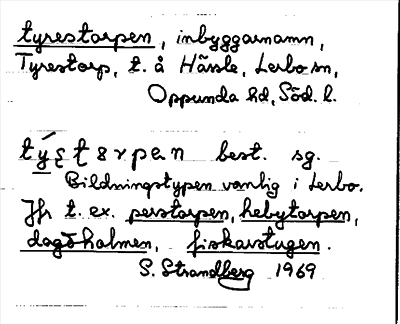 tyrestorpen, inbyggarnamn,
Tyrestorp, t. å Hässle, Lerbo sn,
Oppunda hd, Söd. l.
best. sg.
Bildningstypen vanlig i Lerbo.
Jfr t. ex. perstorpen, hebytorpen,
dagsholmen, fiskarstugen.
S. Strandberg 1969